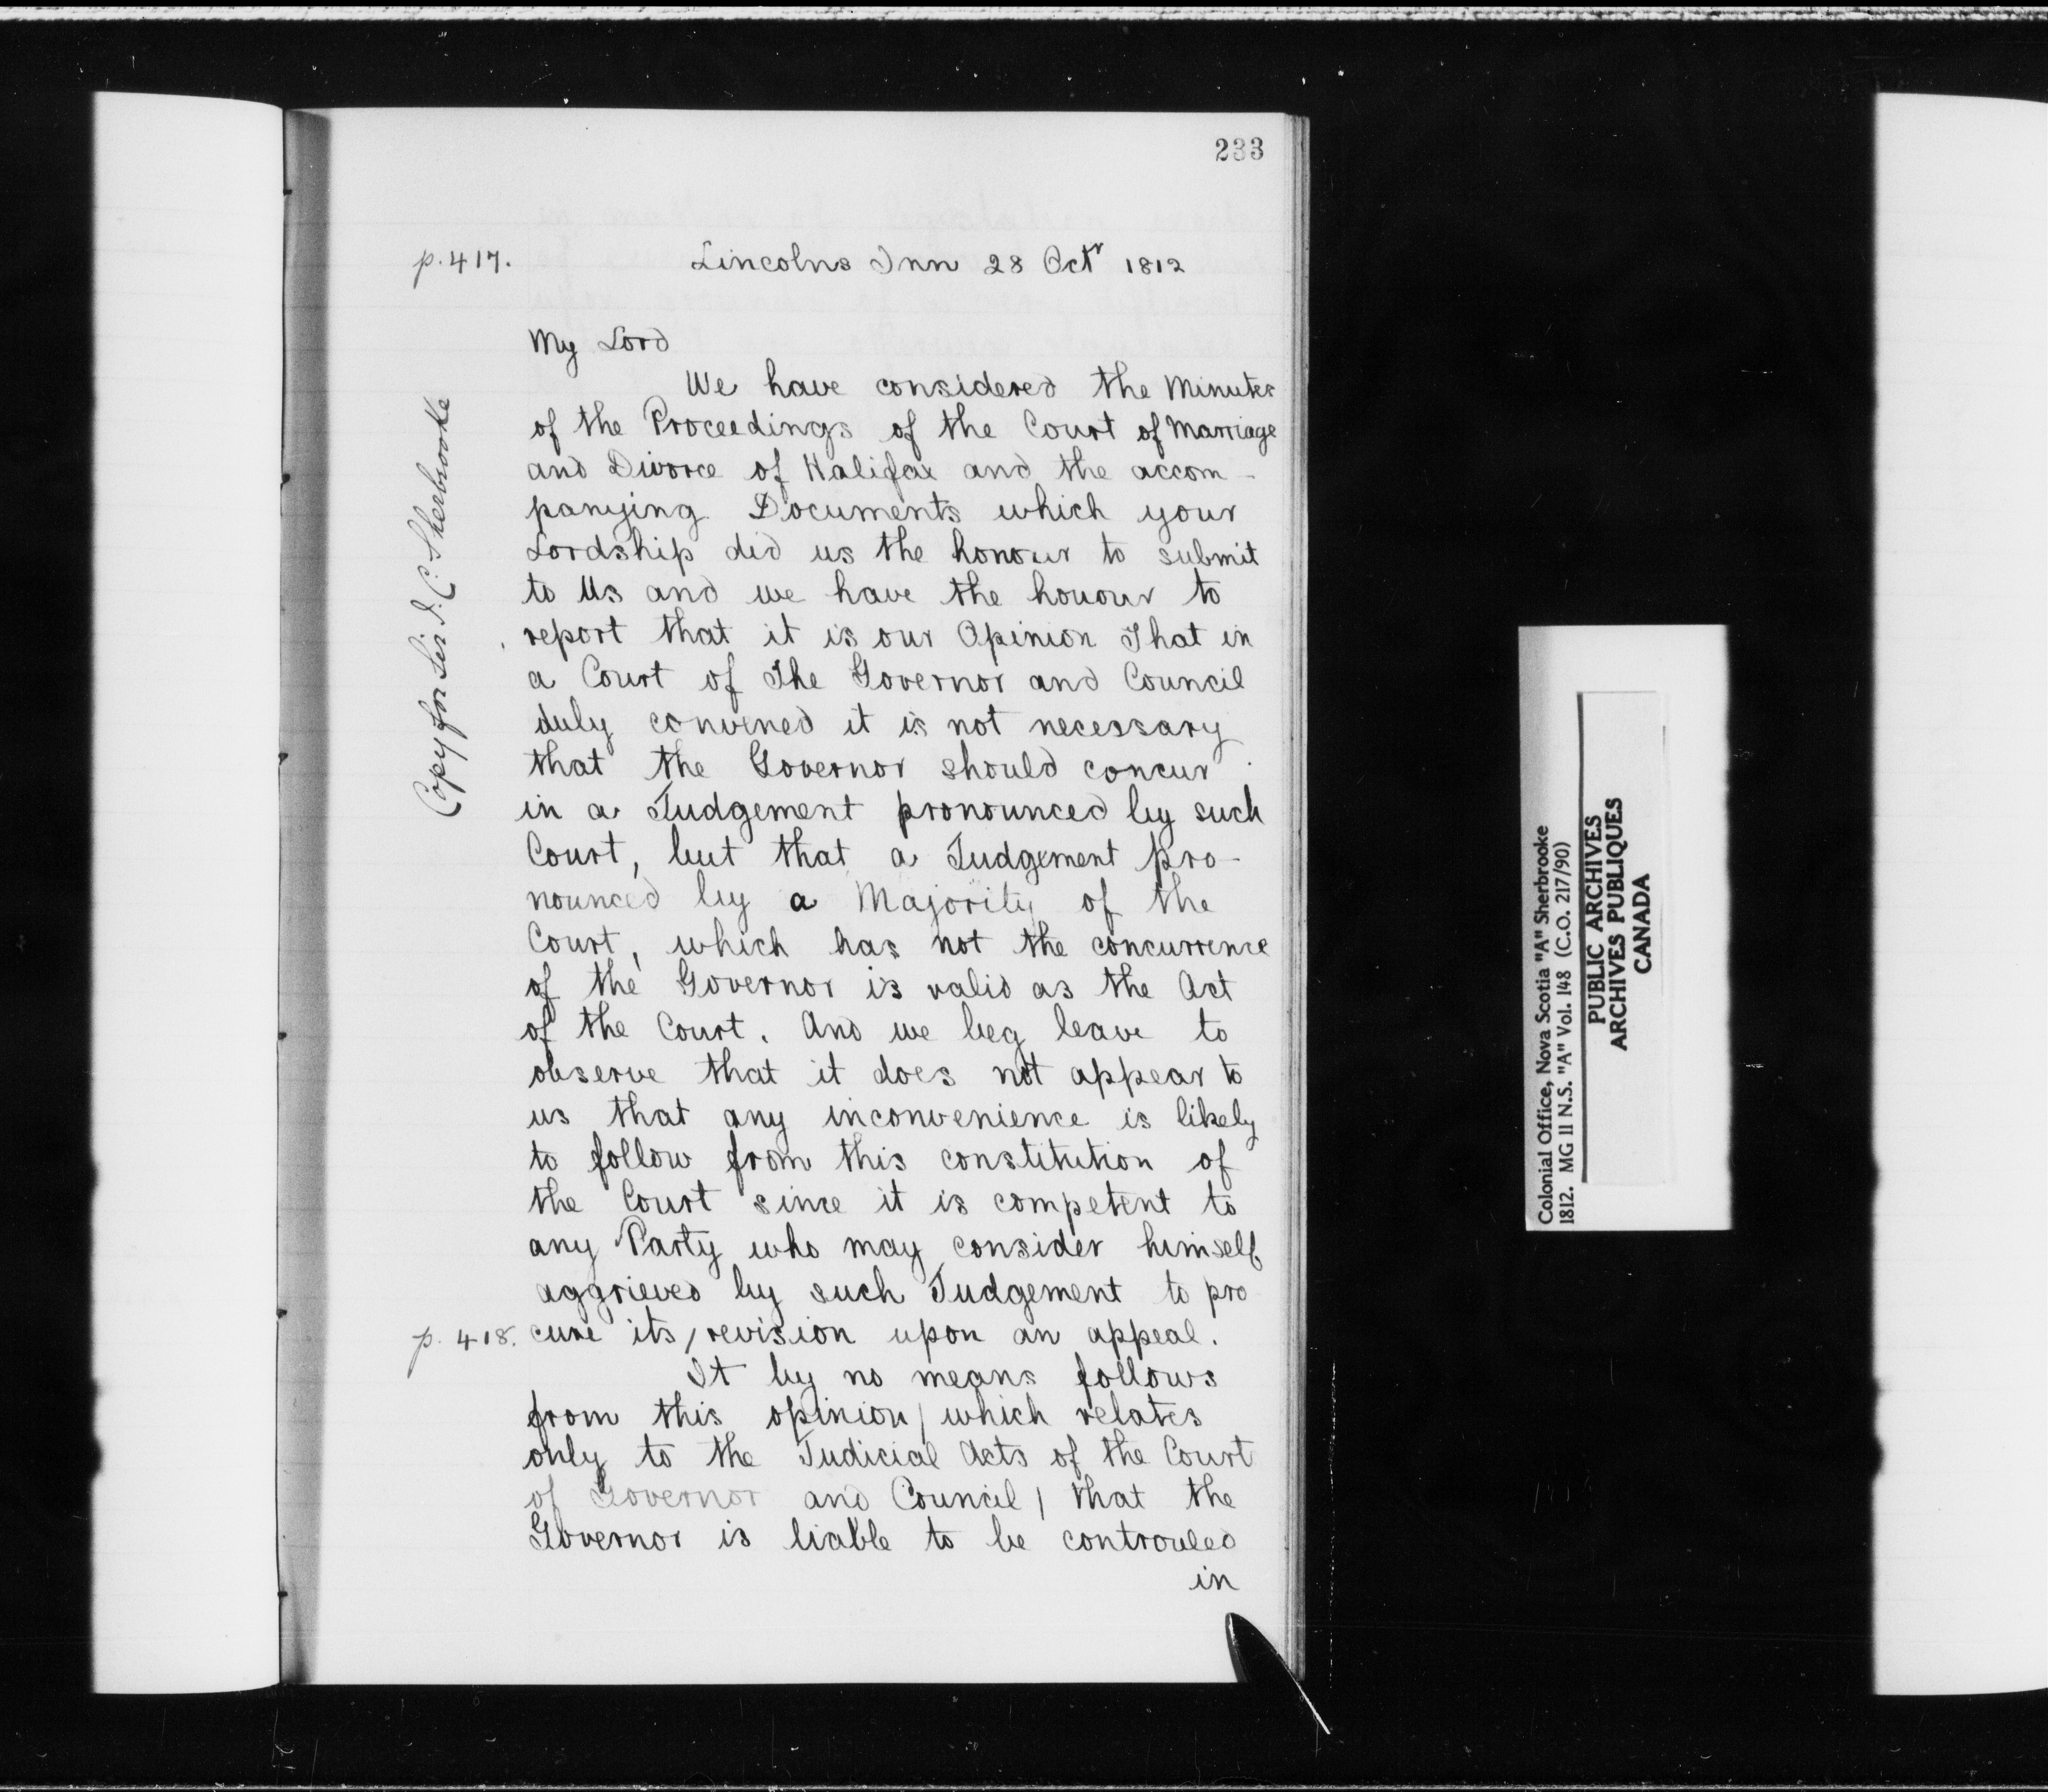 233
p. 417.
Lincolns Inn 28 Octr 1812
My Lord
We have considered the Minutes
of the Proceedings of the Court of Marriage
and Divorce of Halifax and the accom-
panying Documents which your
Lordship did us the honour to submit
to Us and we have the honour to
report that it is our Opinion That in
a Court of The Governor and Council
duly convened it is not necessary
that the Governor should concur
in a Judgement pronounced by such
Court, but that a Judgement pro-
nounced by a Majority of the
Court, which has not the concurrence
of the Governor is valid as the Act
of the Court. And we beg leave to
observe that it does not appear to
us that any inconvenience is likely
to follow from this constitution of
the Court since it is competent to
any Party who may consider himself
aggrieved by such Judgement to pro
p. 418. cure its/revision upon an appeal.
It by no means follows
from this opinion/which relates
only to the Judicial Acts of the Court
of Governor and Council/that the
Governor is liable to be controuled
in
Copy for Sir J. C. Sherbrooke
Colonial Office, Nova Scotia "A" Sherbrooke
1812. MG 11 N.S. "A" Vol. 148 (C.O. 217/90)
PUBLIC ARCHIVES
ARCHIVES PUBLIQUES
CANADA